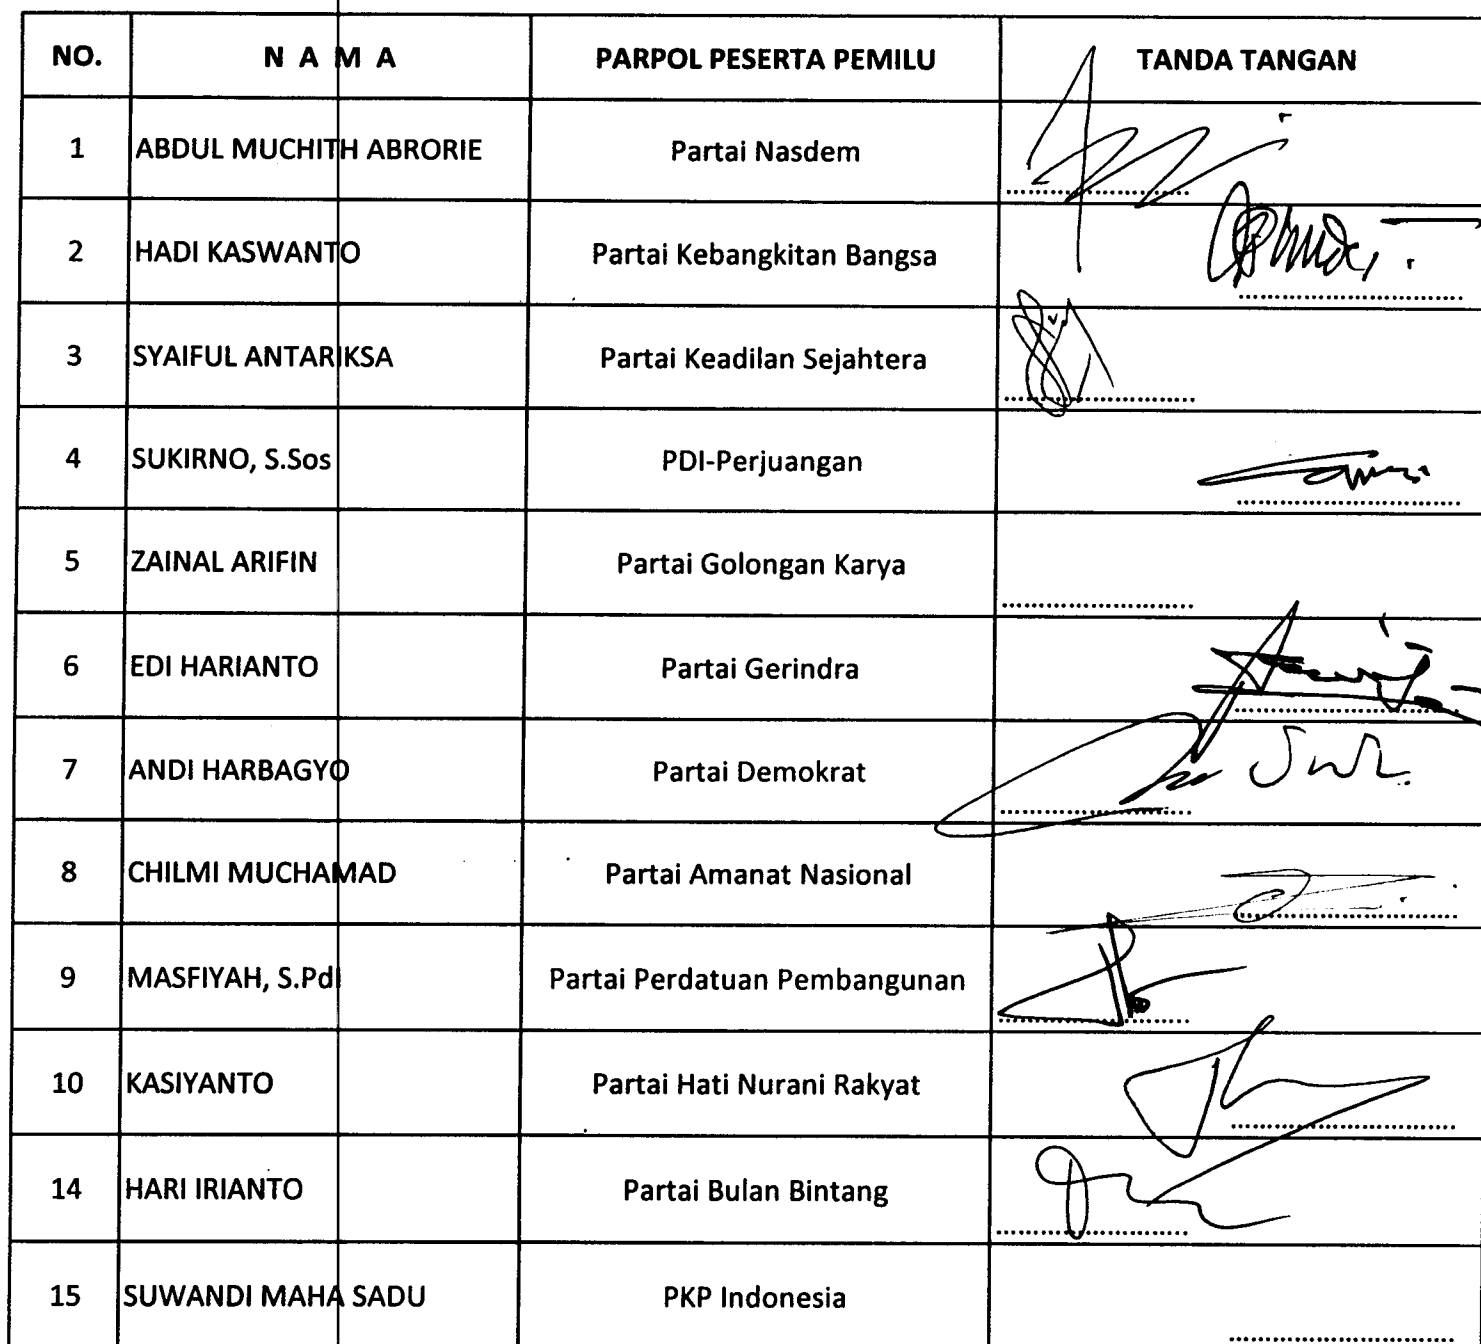 NO. N A M A PARPOL PESERTA PEMILU TANDA TANGAN
1 ABDUL MUCHITH ABRORIE Partai Nasdem
2 HADI KASWANTO Partai Kebangkitan Bangsa
3 SYAIFUL ANTARIKSA Partai Keadilan Sejahtera
4 SUKIRNO, S.Sos PDI-Perjuangan
5 ZAINAL ARIFIN Partai Golongan Karya
6 EDI HARIANTO Partai Gerindra
7 ANDI HARBAGYO Partai Demokrat
8 CHILMI MUCHAMAD Partai Amanat Nasional
9 MASFIYAH, S.PdI Partai Perdatuan Pembangunan
10 KASIYANTO Partai Hati Nurani Rakyat
14 HARI IRIANTO Partai Bulan Bintang
15 SUWANDI MAHA SADU PKP Indonesia